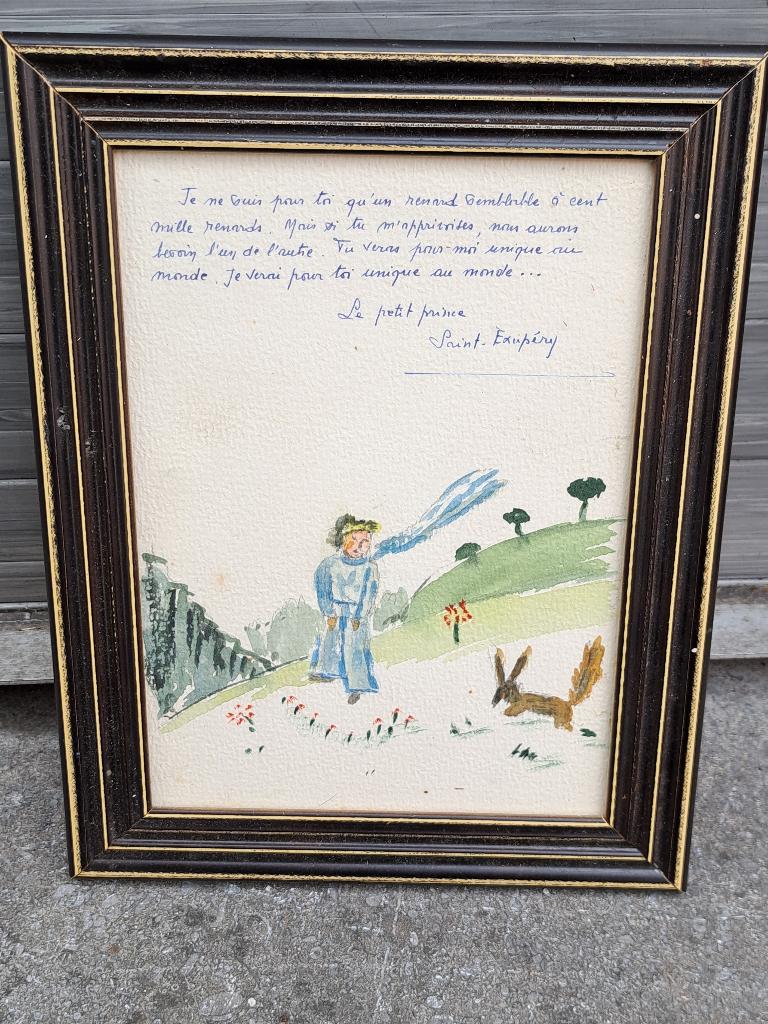 Je ne suis pour toi qu'un renard semblable à cent
mille renards. Mais si tu m'apprivoises, nous aurons
besoin l'un de l'autre. Tu seras pour moi unique au
monde. Je serai pour toi unique au monde...
Le petit prince
Saint-Exupéry